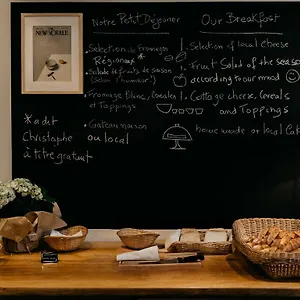 THE
NEW YORKER
Notre Petit Déjeuner
-Selection de Fromages
Régionaux
-Salade de fruits de saison
(Selon l'humeur!)
-Fromage Blanc, Céréales
et Toppings
-Gateau maison
ou local
*a dit
Christophe
à titre gratuit
Our Breakfast
-Selection of local cheese
-Fruit Salad of the season
according to our mood
-Cottage cheese, cereals
and Toppings
home made or local Cake